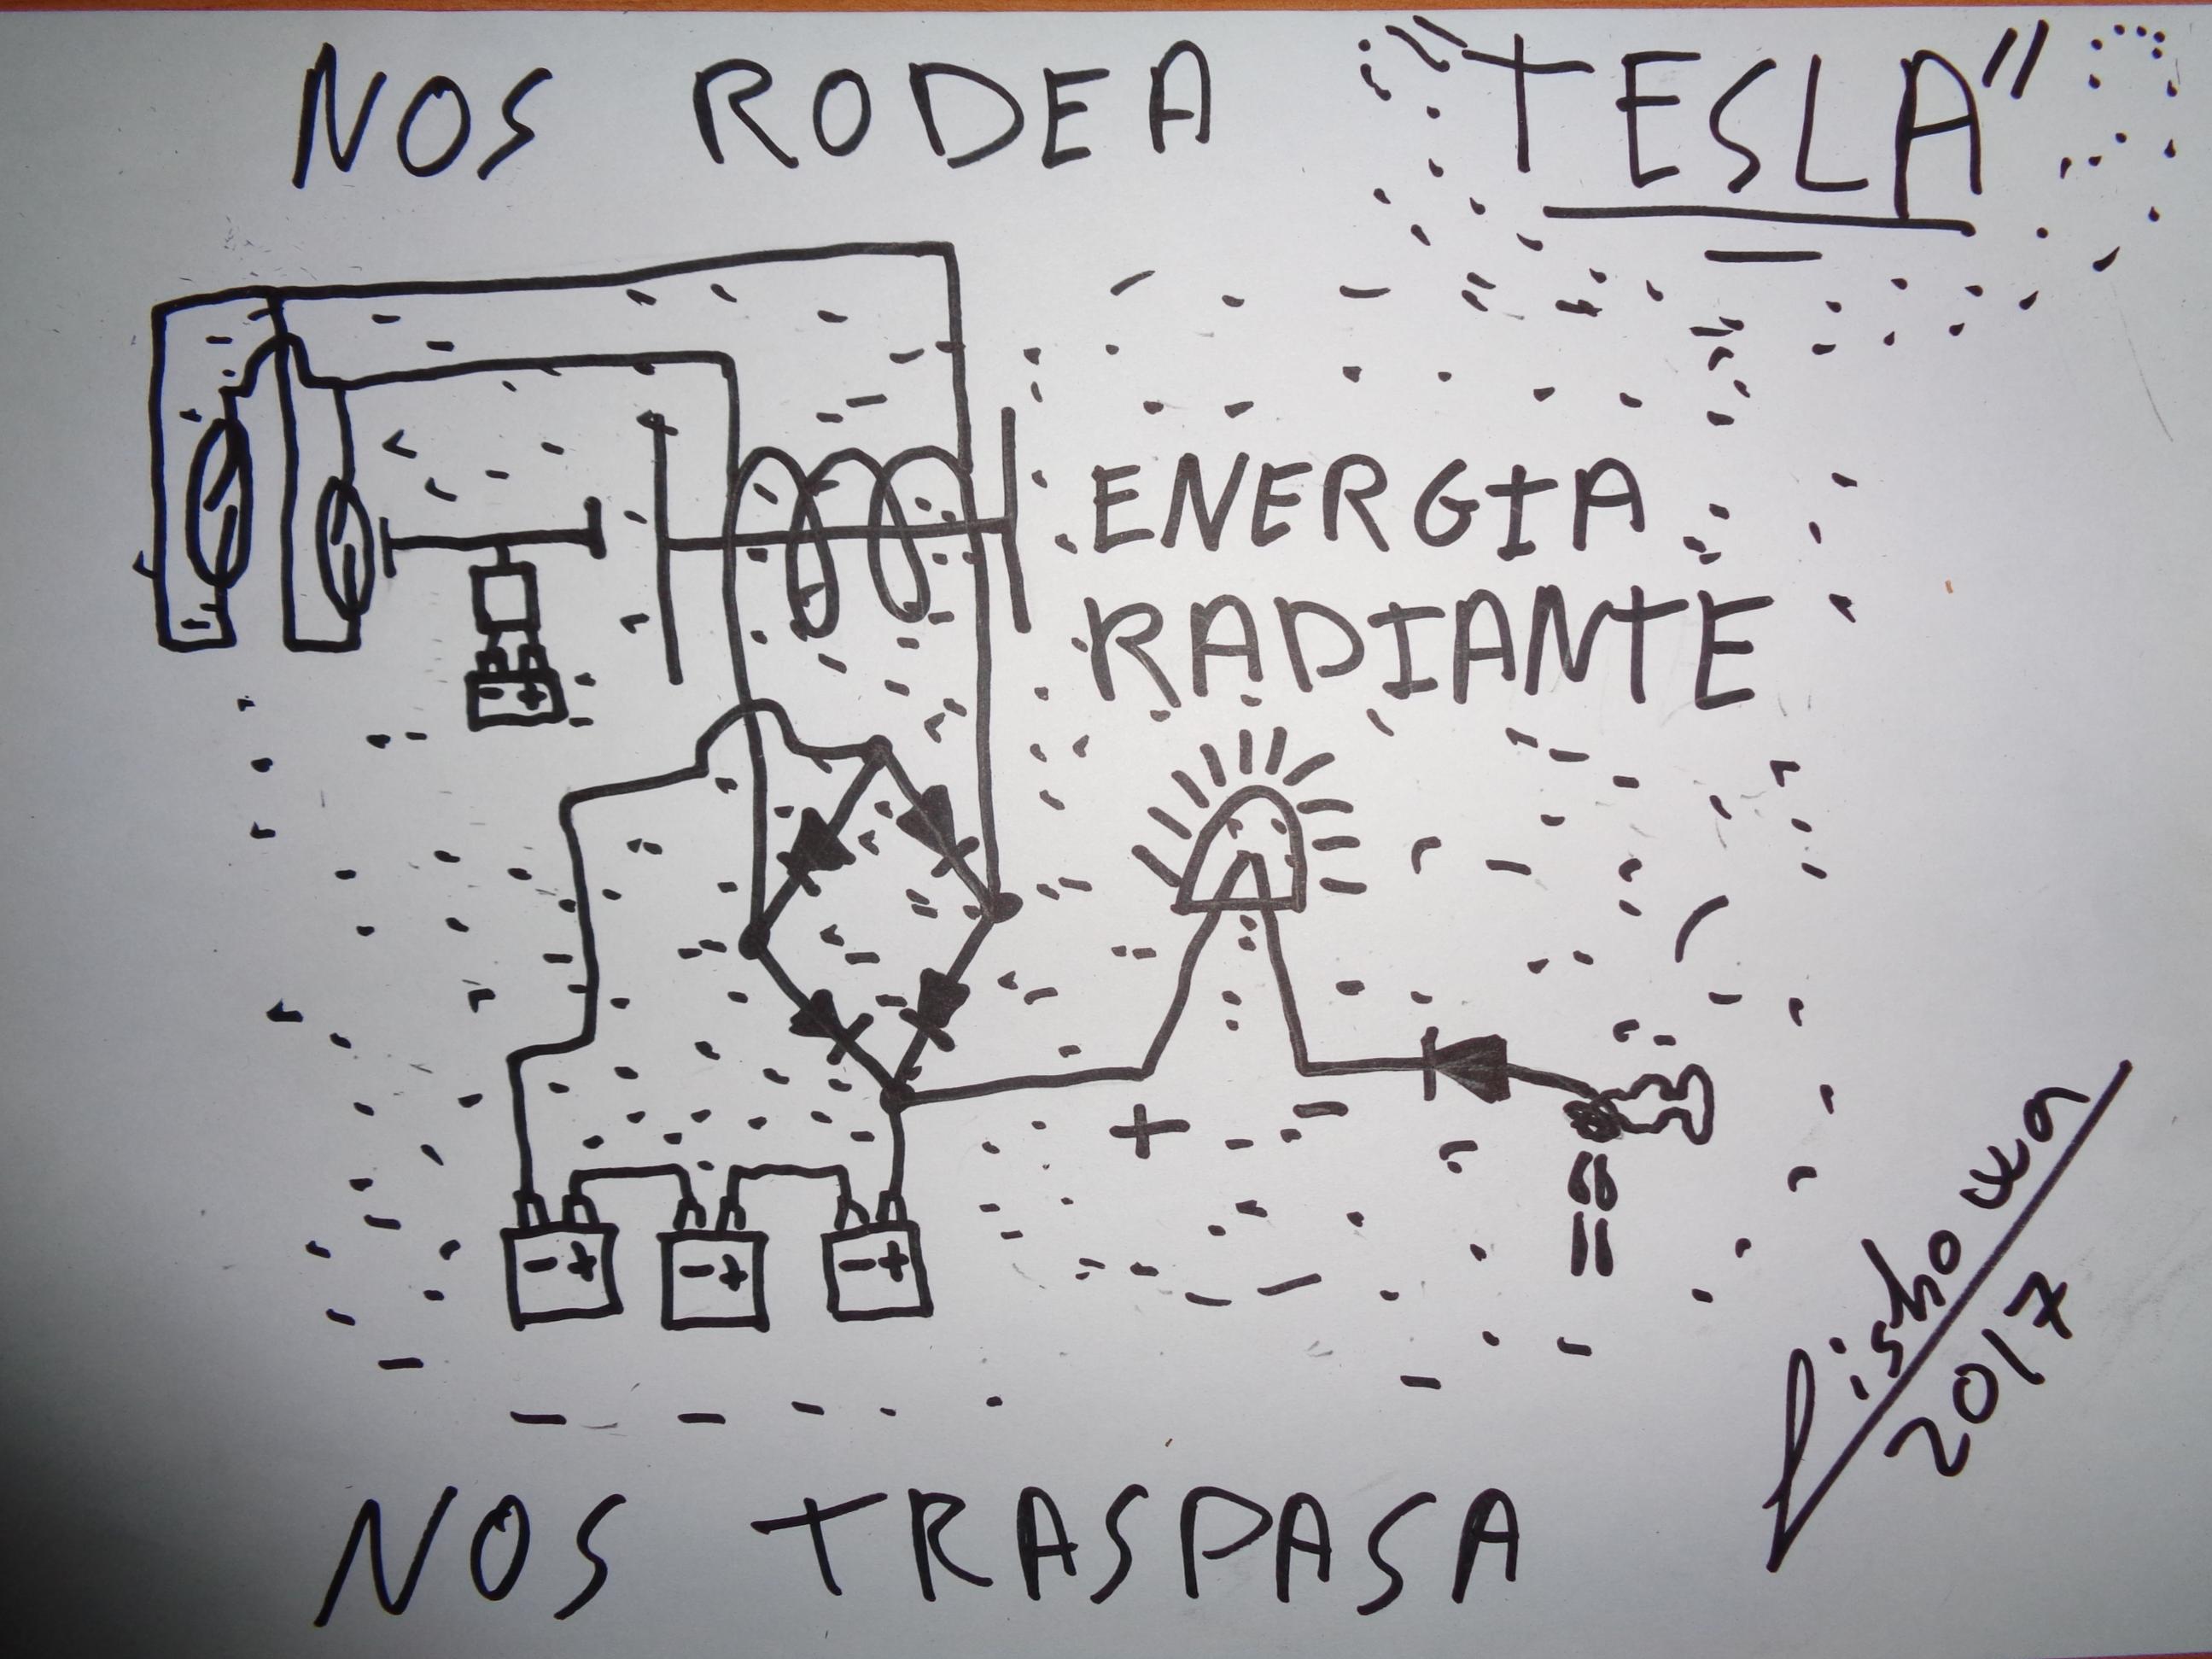 NOS RODEA "TESLA"
ENERGIA
RADIANTE
- +
+ -
- + - + - +
2017
NOS TRASPASA